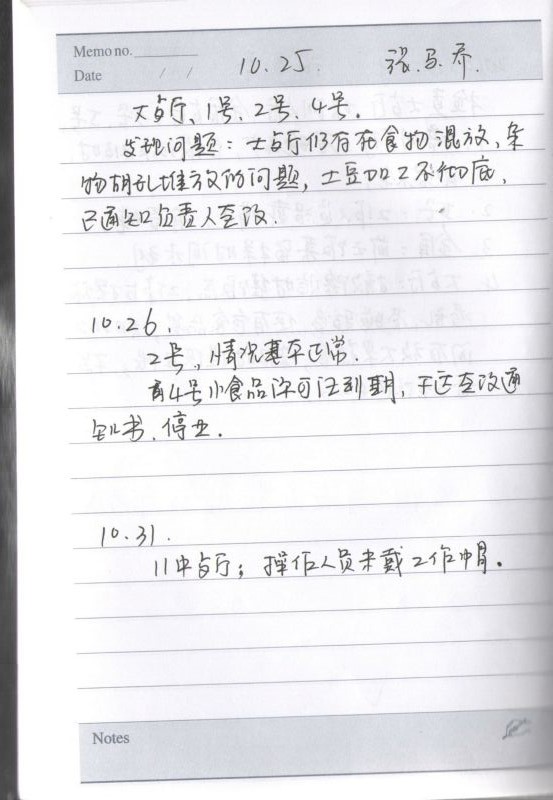 Memo no.
Date / /
10.25. 张.马.乔.
大餐厅、1号、2号、4号.
发现问题：大餐厅仍存在食物混放,杂
物胡乱堆放的问题,土豆加工不彻底,
已通知负责人整改.
10.26.
2号,情况基本正常.
4号小食品许可证到期,下达整改通
知书.停业.
10.31.
11中餐厅；操作人员未戴工作帽。
Notes